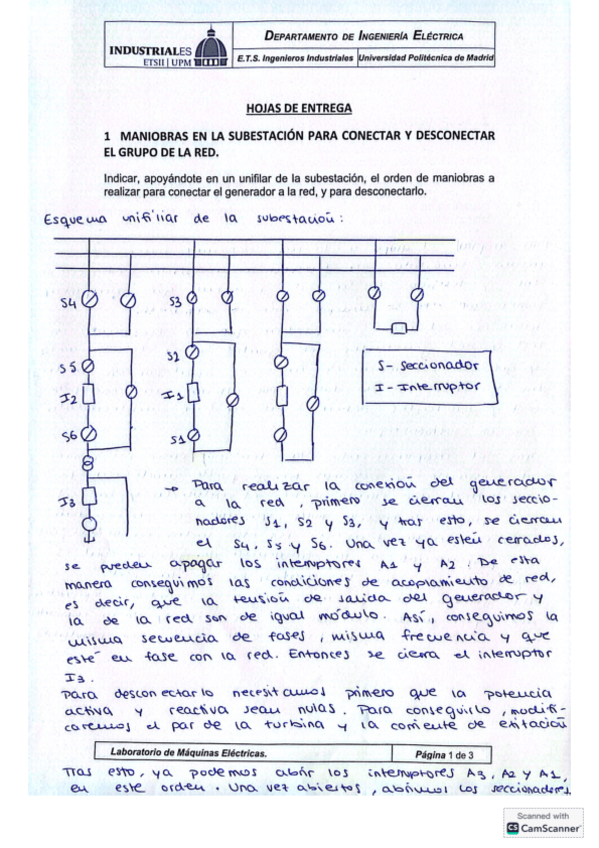 INDUSTRIALES
ETSII | UPM
DEPARTAMENTO DE INGENIERÍA ELÉCTRICA
E.T.S. Ingenieros Industriales
Universidad Politécnica de Madrid
HOJAS DE ENTREGA
1 MANIOBRAS EN LA SUBESTACIÓN PARA CONECTAR Y DESCONECTAR
EL GRUPO DE LA RED.
Indicar, apoyándote en un unifilar de la subestación, el orden de maniobras a
realizar para conectar el generador a la red, y para desconectarlo.
Esquema unifiliar de la subestación:
S4
S3
S5
S2
I2
I1
S6
S1
I3
S- Seccionador
I- Interruptor
→ Para realizar la conexión del generador
a la red, primero se cierran los seccio-
nadores S1, S2 y S3, y tras esto, se cierran
el S4, S5 y S6. Una vez ya estén cerrados,
se pueden apagar los interruptores A1 y A2. De esta
manera conseguimos las condiciones de acoplamiento de red,
es decir, que la tensión de salida del generador y
la de la red son de igual módulo. Así, conseguimos la
misma secuencia de fases, misma frecuencia y que
esté en fase con la red. Entonces se cierra el interruptor
I3.
Para desconectarlo necesitamos primero que la potencia
activa y reactiva sean nulas. Para conseguirlo, modifi-
caremos el par de la turbina y la corriente de exitación
Laboratorio de Máquinas Eléctricas.
Página 1 de 3
Tras esto, ya podemos abrir los interruptores A3, A2 y A1,
en este orden. Una vez abiertos, abrimos los seccionadores.
Scanned with
CS CamScanner